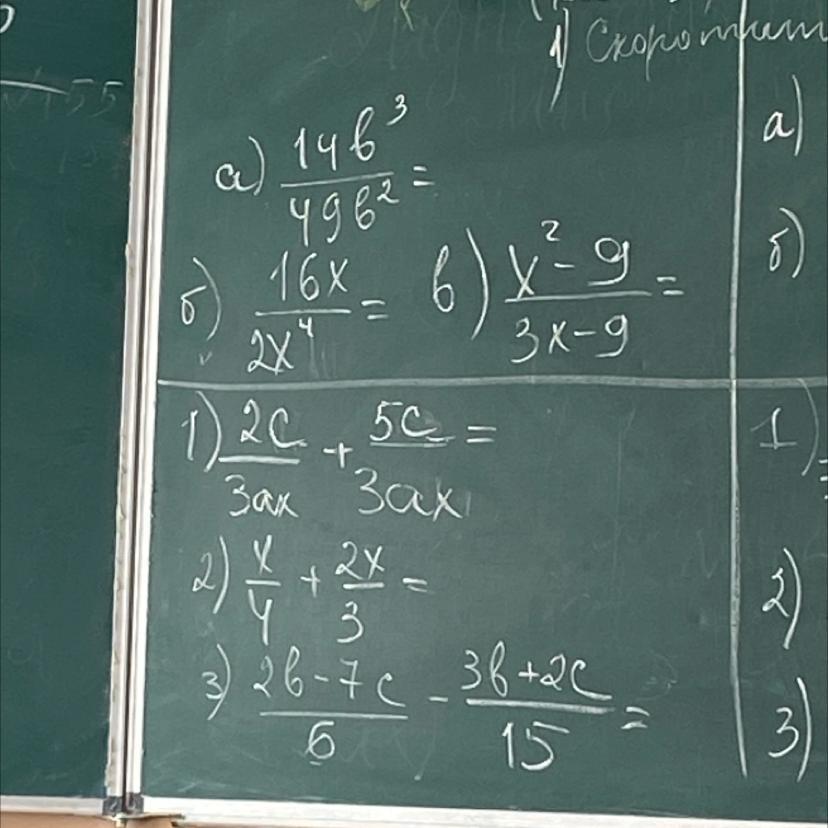 1) Скоротит
a)
а) 14b³/49b² =
б)
б) 16x/2x⁴ = в) (x² - 9)/(3x - 9) =
1) 2c/3ax + 5c/3ax =
1)
2) x/4 + 2x/3 =
2)
3) (2b - 7c)/6 - (3b + 2c)/15 =
3)